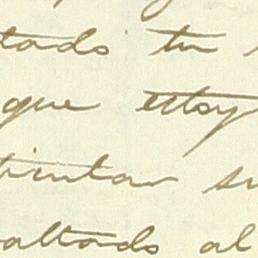 tado tu
que estoy
ticular su
altado al